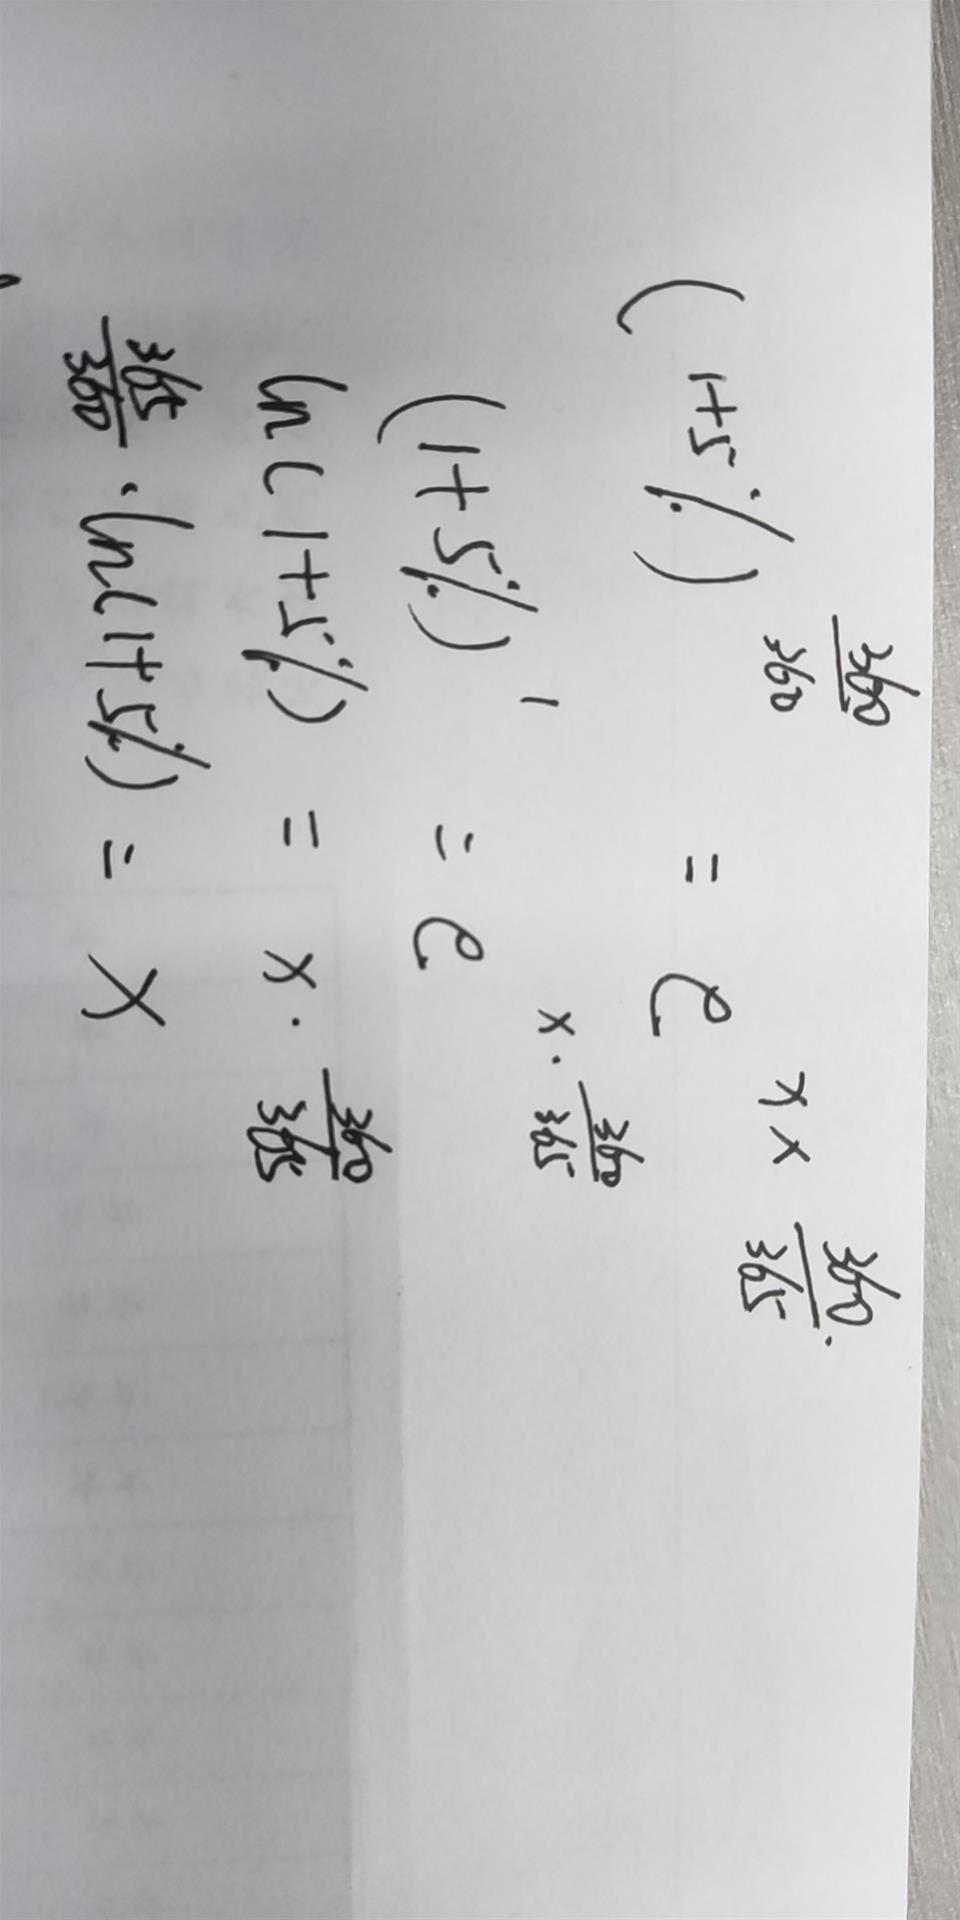 (1+5%)^(360/360) = e^(x × 360/365).
(1+5%)^1 = e^(x · 360/365)
ln(1+5%) = x · 360/365
365/360 · ln(1+5%) = x